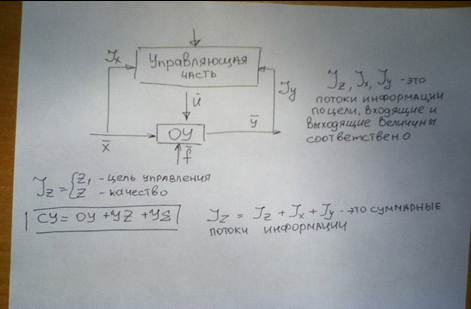 Jx
Управляющая
часть
Jy
ū
x̄
ОУ
ȳ
f̄
Jz, Jx, Jy - это
потоки информации
по цели, входящие и
выходящие величины
соответствен.о
Jz = { z, - цель управления
z - качество
СУ = ОУ + УZ + УS
Jz = Jz + Jx + Jy - это суммарные
потоки информации